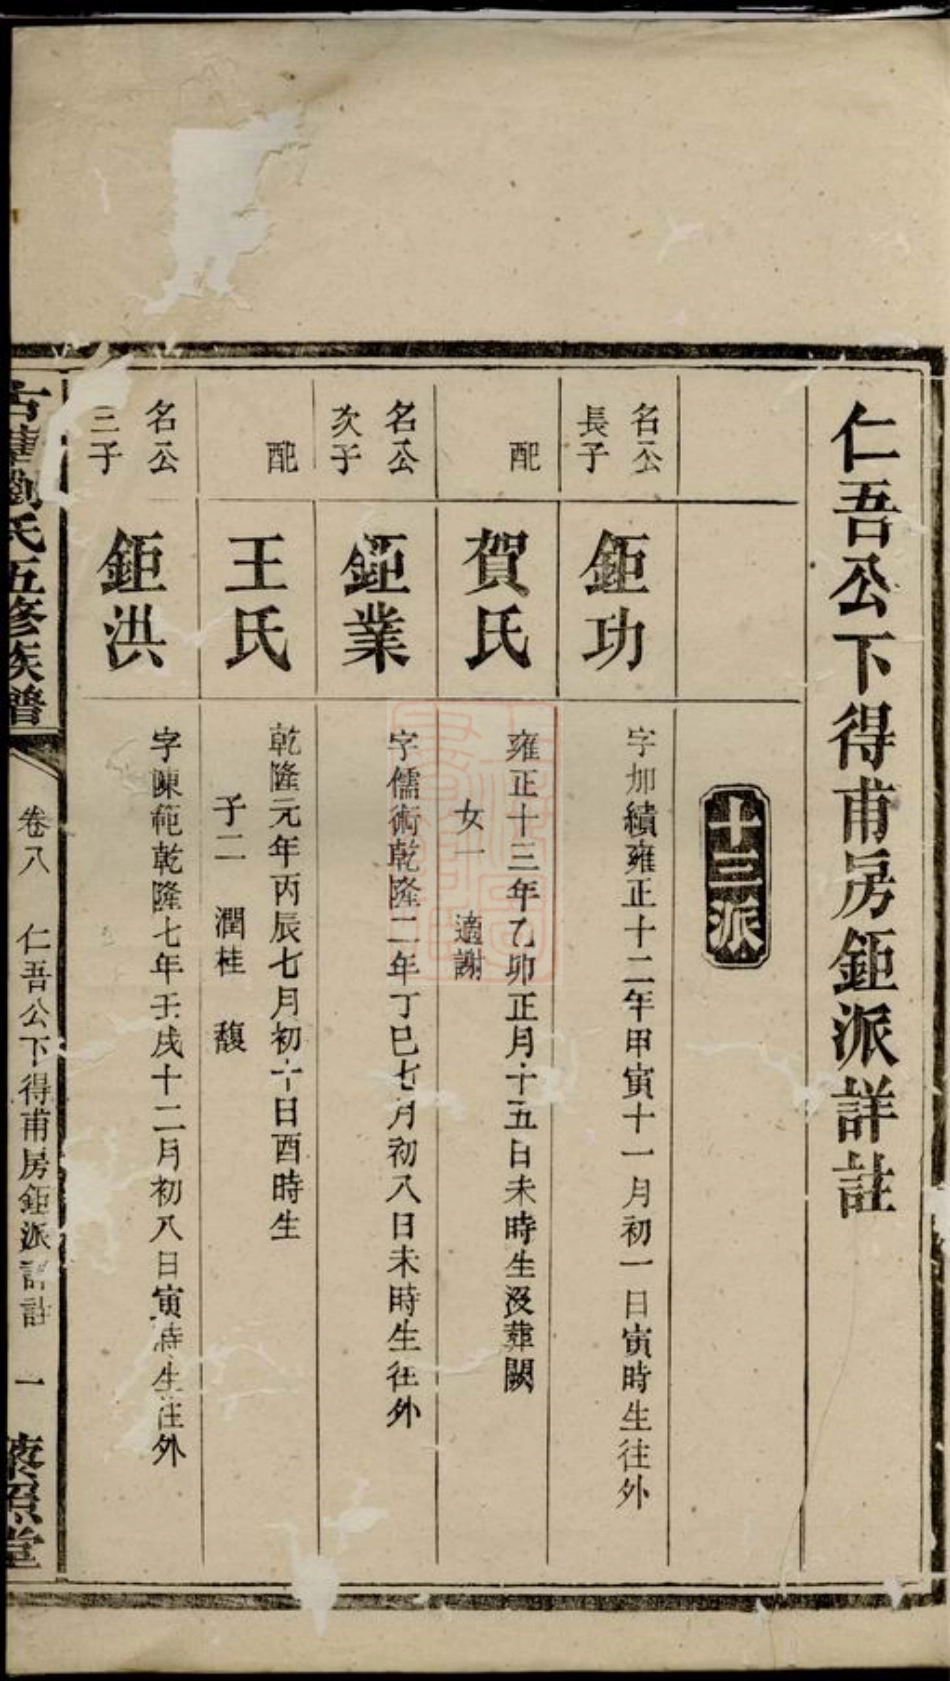 仁吾公下得甫房鉅派詳註
十三派
名公
長子
鉅功
字加績雍正十二年甲寅十一月初一日寅時生往外
配
賀氏
雍正十三年乙卯正月十五日未時生沒葬闕
女一 適謝
名公
次子
鉅業
字儒術乾隆二年丁巳七月初八日未時生往外
配
王氏
乾隆元年丙辰七月初六日酉時生
子二 潤桂 馥
名公
三子
鉅洪
字陳範乾隆七年壬戌十二月初八日寅時生往外
劉氏五修族譜
卷八 仁吾公下得甫房鉅派詳註 一
照堂